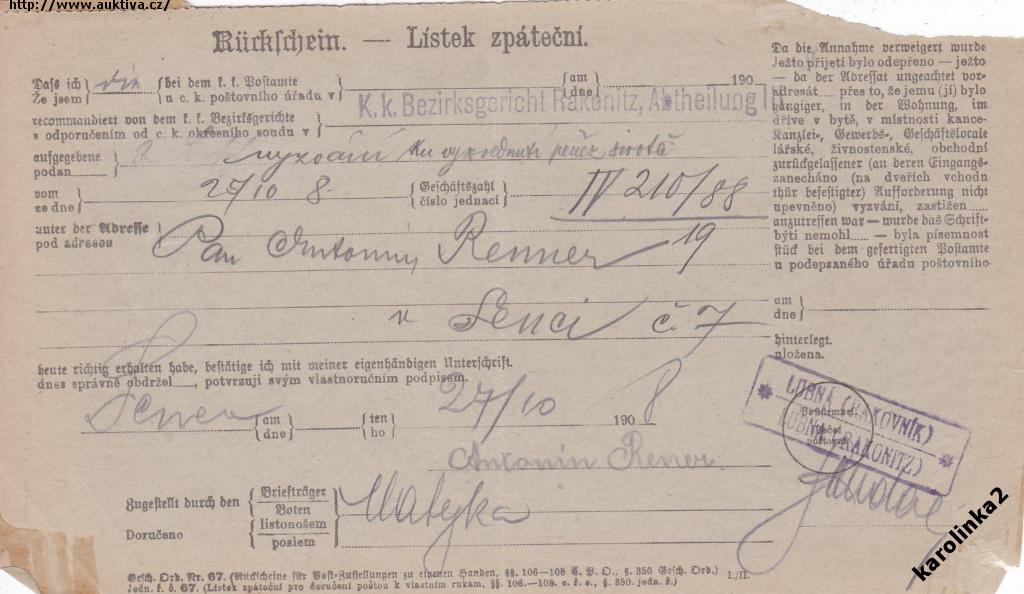 http://www.auktiva.cz/
Rückschein. — Lístek zpáteční.
Daß ich die bei dem k. k. Postamte am 190
Že jsem u c. k. poštovního úřadu v dne
K. k. Bezirksgericht Rakonitz, Abtheilung
recommandiert von dem k. k. Bezirksgerichte
s odporučením od c. k. okresního soudu v
aufgegebene
podan vyzvání ku vyzvednutí peněz
vom 27/10 8. Geschäftszahl IV 210/88
ze dne číslo jednací 19
unter der Adresse Pan Antonín Renner
pod adresou
v Senci č. 7
heute richtig erhalten habe, bestätige ich mit meiner eigenhändigen Unterschrift.
dnes správně obdržel, potvrzuji svým vlastnoručním podpisem.
Senec am ten 27/10 1908
dne ho
Antonín Rener
Zugestellt durch den Briefträger Matejka
Boten
Doručeno listonošem
poslem
Gesch. Ord. Nr. 67. (Rückscheine für Post-Zustellungen zu eigenen Handen, §§. 106—108 C. P. O., §. 350 Gesch. Ord.) I./II.
Jedn. ř. č. 67. (Lístek zpáteční pro doručení poštou k vlastním rukám, §§. 106.—108. c. ř. s., §. 350. jedn. ř.)
Da die Annahme verweigert wurde
Ježto přijetí bylo odepřeno — ježto
— da der Adressat ungeachtet vor-
adresát přes to, že jemu (jí) bylo
gängiger, in der Wohnung, im
dříve v bytě, v místnosti kance-
Kanzlei-, Gewerbs-, Geschäftslocale
lářské, živnostenské, obchodní
zurückgelassener (an deren Eingangs-
zanecháno (na dveřích vchodu
thür befestigter) Aufforderung nicht
upevněno) vyzvání, zastižen
anzutreffen war — wurde das Schrift-
býti nemohl — byla písemnost
stück bei dem gefertigten Postamte
u podepsaného úřadu poštovního
am
dne
hinterlegt.
uložena.
LUBNÁ (RAKOVNÍK)
LUBNA (RAKONITZ)
karolinka2